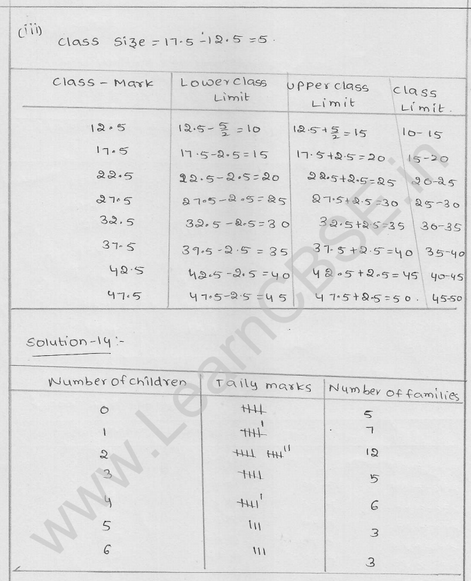 (iii)
Class Size = 17.5 - 12.5 = 5.
Class - Mark Lower Class Limit Upper class Limit Class Limit.
12.5 12.5 - 5/2 = 10 12.5 + 5/2 = 15 10-15
17.5 17.5 - 2.5 = 15 17.5 + 2.5 = 20 15-20
22.5 22.5 - 2.5 = 20 22.5 + 2.5 = 25 20-25
27.5 27.5 - 2.5 = 25 27.5 + 2.5 = 30 25-30
32.5 32.5 - 2.5 = 30 32.5 + 2.5 = 35 30-35
37.5 37.5 - 2.5 = 35 37.5 + 2.5 = 40 35-40
42.5 42.5 - 2.5 = 40 42.5 + 2.5 = 45 40-45
47.5 47.5 - 2.5 = 45 47.5 + 2.5 = 50. 45-50
Solution-14:-
Number of children Tally marks Number of families
0 5
1 7
2 12
3 5
4 6
5 III 3
6 III 3
www.LearnCBSE.in